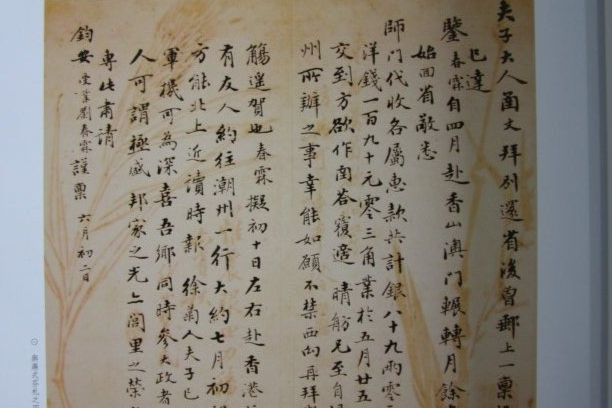 夫子大人函丈拜別還省後曾郵上一稟
已達
鑒春霖自四月赴香山澳門輾轉月餘
始回省敬悉
師門代收各屬惠款共計銀八十九兩零
洋錢一百九十元零三角業於五月廿五
交到方欲作函荅覆適晴舫兄至自
州所辦之事幸能如願不禁西向再拜
觴遥賀也春霖擬初十日左右赴香港
有友人約往潮州一行大約七月初
方能北上近讀時報徐菊人夫子已
軍機可為深喜吾鄉同時參大政者
人可謂極盛邦家之光上閭里之榮
專此肅請
鈞安受業劉春霖謹稟六月初二日